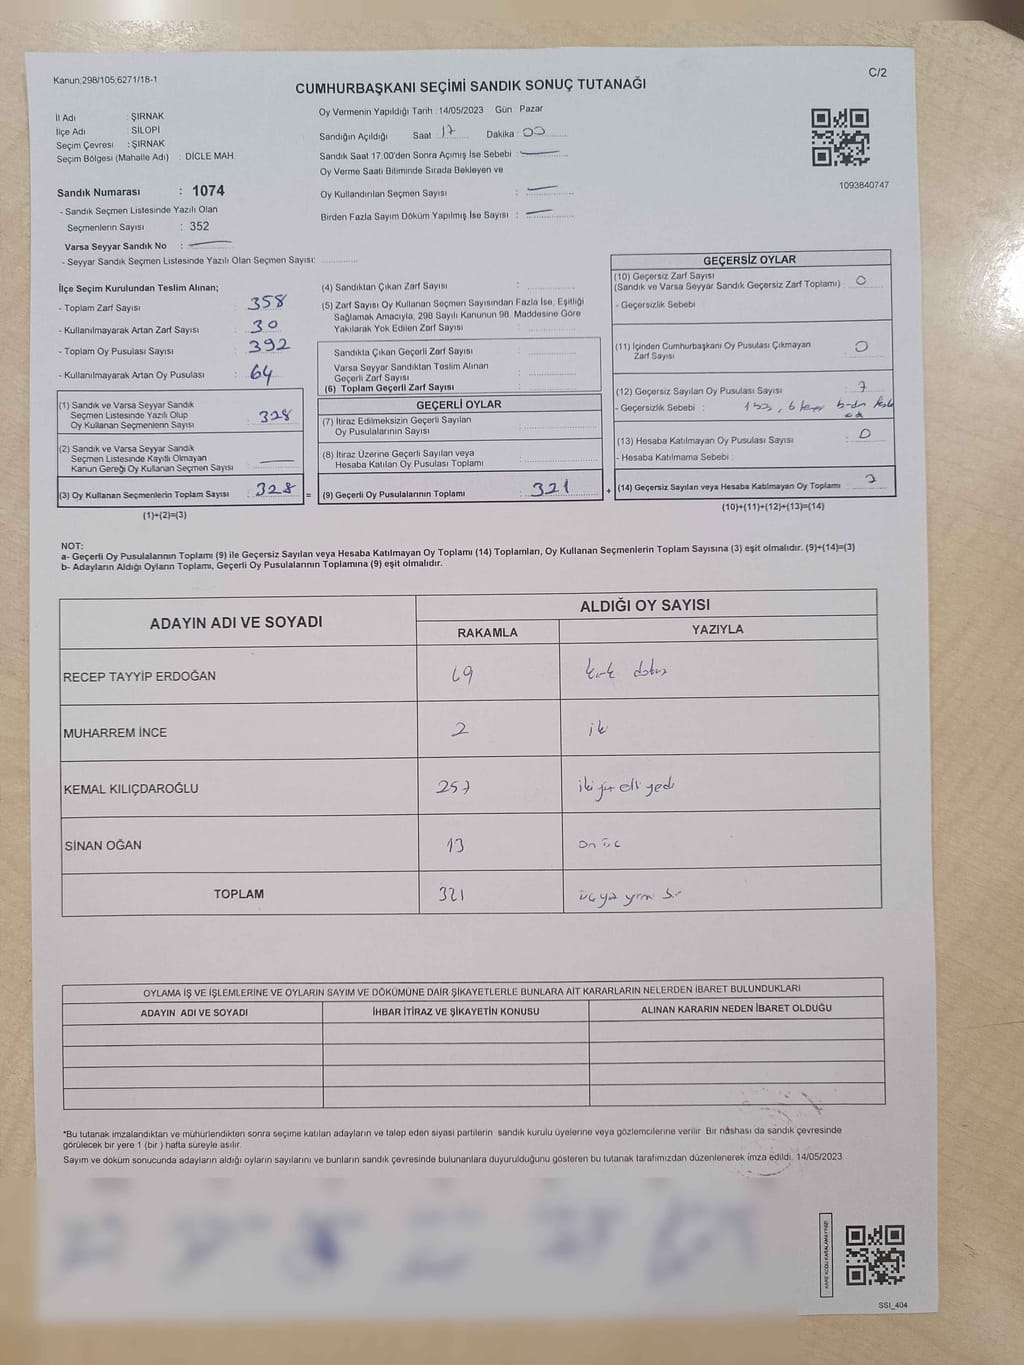 Kanun:298/105;6271/18-1
C/2
CUMHURBAŞKANI SEÇİMİ SANDIK SONUÇ TUTANAĞI
İl Adı : ŞIRNAK
İlçe Adı : SİLOPİ
Seçim Çevresi : ŞIRNAK
Seçim Bölgesi (Mahalle Adı) : DİCLE MAH.
Sandık Numarası : 1074
- Sandık Seçmen Listesinde Yazılı Olan
Seçmenlerin Sayısı : 352
Varsa Seyyar Sandık No :
- Seyyar Sandık Seçmen Listesinde Yazılı Olan Seçmen Sayısı:
Oy Vermenin Yapıldığı Tarih : 14/05/2023 Gün Pazar
Sandığın Açıldığı Saat 17 Dakika : 00
Sandık Saat 17.00'den Sonra Açımış İse Sebebi :
Oy Verme Saati Bitiminde Sırada Bekleyen ve
Oy Kullandırılan Seçmen Sayısı :
Birden Fazla Sayım Döküm Yapılmış İse Sayısı :
1093840747
İlçe Seçim Kurulundan Teslim Alınan;
- Toplam Zarf Sayısı : 358
- Kullanılmayarak Artan Zarf Sayısı : 30
- Toplam Oy Pusulası Sayısı : 392
- Kullanılmayarak Artan Oy Pusulası : 64
(1) Sandık ve Varsa Seyyar Sandık
Seçmen Listesinde Yazılı Olup
Oy Kullanan Seçmenlerin Sayısı : 328
(2) Sandık ve Varsa Seyyar Sandık
Seçmen Listesinde Kayıtlı Olmayan
Kanun Gereği Oy Kullanan Seçmen Sayısı :
(3) Oy Kullanan Seçmenlerin Toplam Sayısı : 328 =
(1)+(2)=(3)
(4) Sandıktan Çıkan Zarf Sayısı :
(5) Zarf Sayısı Oy Kullanan Seçmen Sayısından Fazla İse, Eşitliği
Sağlamak Amacıyla, 298 Sayılı Kanunun 98. Maddesine Göre
Yakılarak Yok Edilen Zarf Sayısı :
Sandıkta Çıkan Geçerli Zarf Sayısı :
Varsa Seyyar Sandıktan Teslim Alınan
Geçerli Zarf Sayısı :
(6) Toplam Geçerli Zarf Sayısı :
GEÇERLİ OYLAR
(7) İtiraz Edilmeksizin Geçerli Sayılan
Oy Pusulalarının Sayısı :
(8) İtiraz Üzerine Geçerli Sayılan veya
Hesaba Katılan Oy Pusulası Toplamı :
(9) Geçerli Oy Pusulalarının Toplamı : 321 +
GEÇERSİZ OYLAR
(10) Geçersiz Zarf Sayısı
(Sandık ve Varsa Seyyar Sandık Geçersiz Zarf Toplamı) : 0
- Geçersizlik Sebebi :
(11) İçinden Cumhurbaşkanı Oy Pusulası Çıkmayan
Zarf Sayısı : 0
(12) Geçersiz Sayılan Oy Pusulası Sayısı : 7
- Geçersizlik Sebebi :
(13) Hesaba Katılmayan Oy Pusulası Sayısı : 0
- Hesaba Katılmama Sebebi :
(14) Geçersiz Sayılan veya Hesaba Katılmayan Oy Toplamı : 7
(10)+(11)+(12)+(13)=(14)
NOT:
a- Geçerli Oy Pusulalarının Toplamı (9) ile Geçersiz Sayılan veya Hesaba Katılmayan Oy Toplamı (14) Toplamları, Oy Kullanan Seçmenlerin Toplam Sayısına (3) eşit olmalıdır. (9)+(14)=(3)
b- Adayların Aldığı Oyların Toplamı, Geçerli Oy Pusulalarının Toplamına (9) eşit olmalıdır.
ADAYIN ADI VE SOYADI
ALDIĞI OY SAYISI
RAKAMLA YAZIYLA
RECEP TAYYİP ERDOĞAN 49 kırk dokuz
MUHARREM İNCE 2 iki
KEMAL KILIÇDAROĞLU 257 iki yüz elli yedi
SİNAN OĞAN 13 on üç
TOPLAM 321 üçyüz yirmi bir
OYLAMA İŞ VE İŞLEMLERİNE VE OYLARIN SAYIM VE DÖKÜMÜNE DAİR ŞİKAYETLERLE BUNLARA AİT KARARLARIN NELERDEN İBARET BULUNDUKLARI
ADAYIN ADI VE SOYADI İHBAR İTİRAZ VE ŞİKAYETİN KONUSU ALINAN KARARIN NEDEN İBARET OLDUĞU
*Bu tutanak imzalandıktan ve mühürlendikten sonra seçime katılan adayların ve talep eden siyasi partilerin sandık kurulu üyelerine veya gözlemcilerine verilir. Bir nüshası da sandık çevresinde
görülecek bir yere 1 (bir ) hafta süreyle asılır.
Sayım ve döküm sonucunda adayların aldığı oyların sayılarını ve bunların sandık çevresinde bulunanlara duyurulduğunu gösteren bu tutanak tarafımızdan düzenlenerek imza edildi. 14/05/2023
KARE KODU KARALAMAYINIZ!
SSI_404